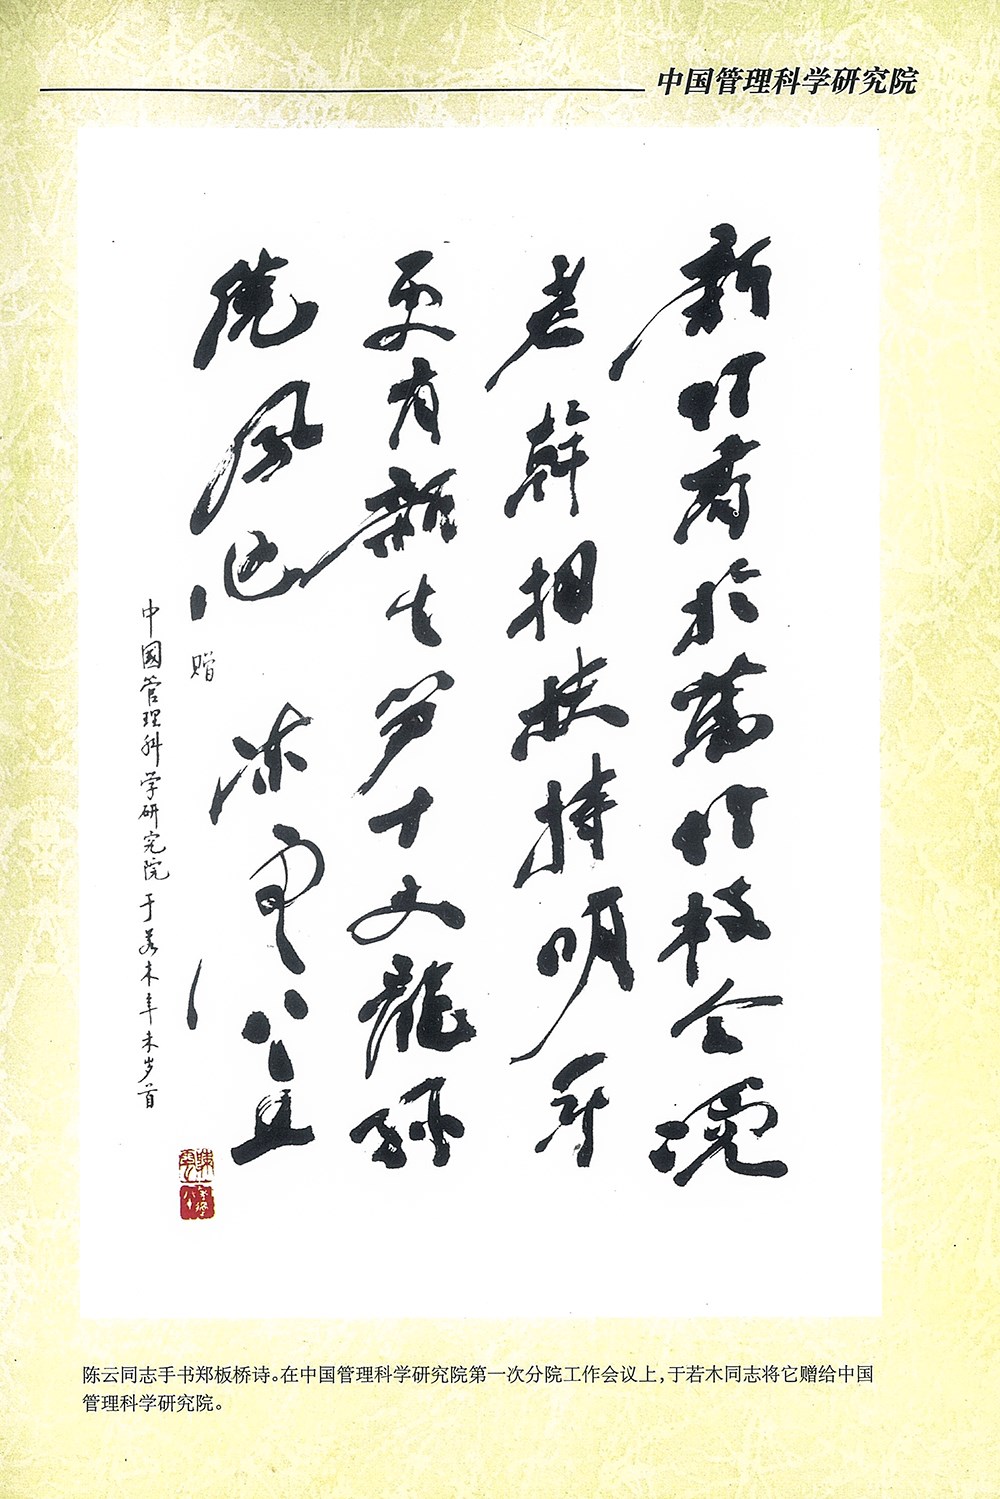 中国管理科学研究院
新竹高於舊竹枝全憑
老幹相扶持明年
更有新生笋十丈龍孫
繞凤池
陈雲八十五
赠
中國管理科学研究院于若木辛未岁首
陈云同志手书郑板桥诗。在中国管理科学研究院第一次分院工作会议上,于若木同志将它赠给中国
管理科学研究院。